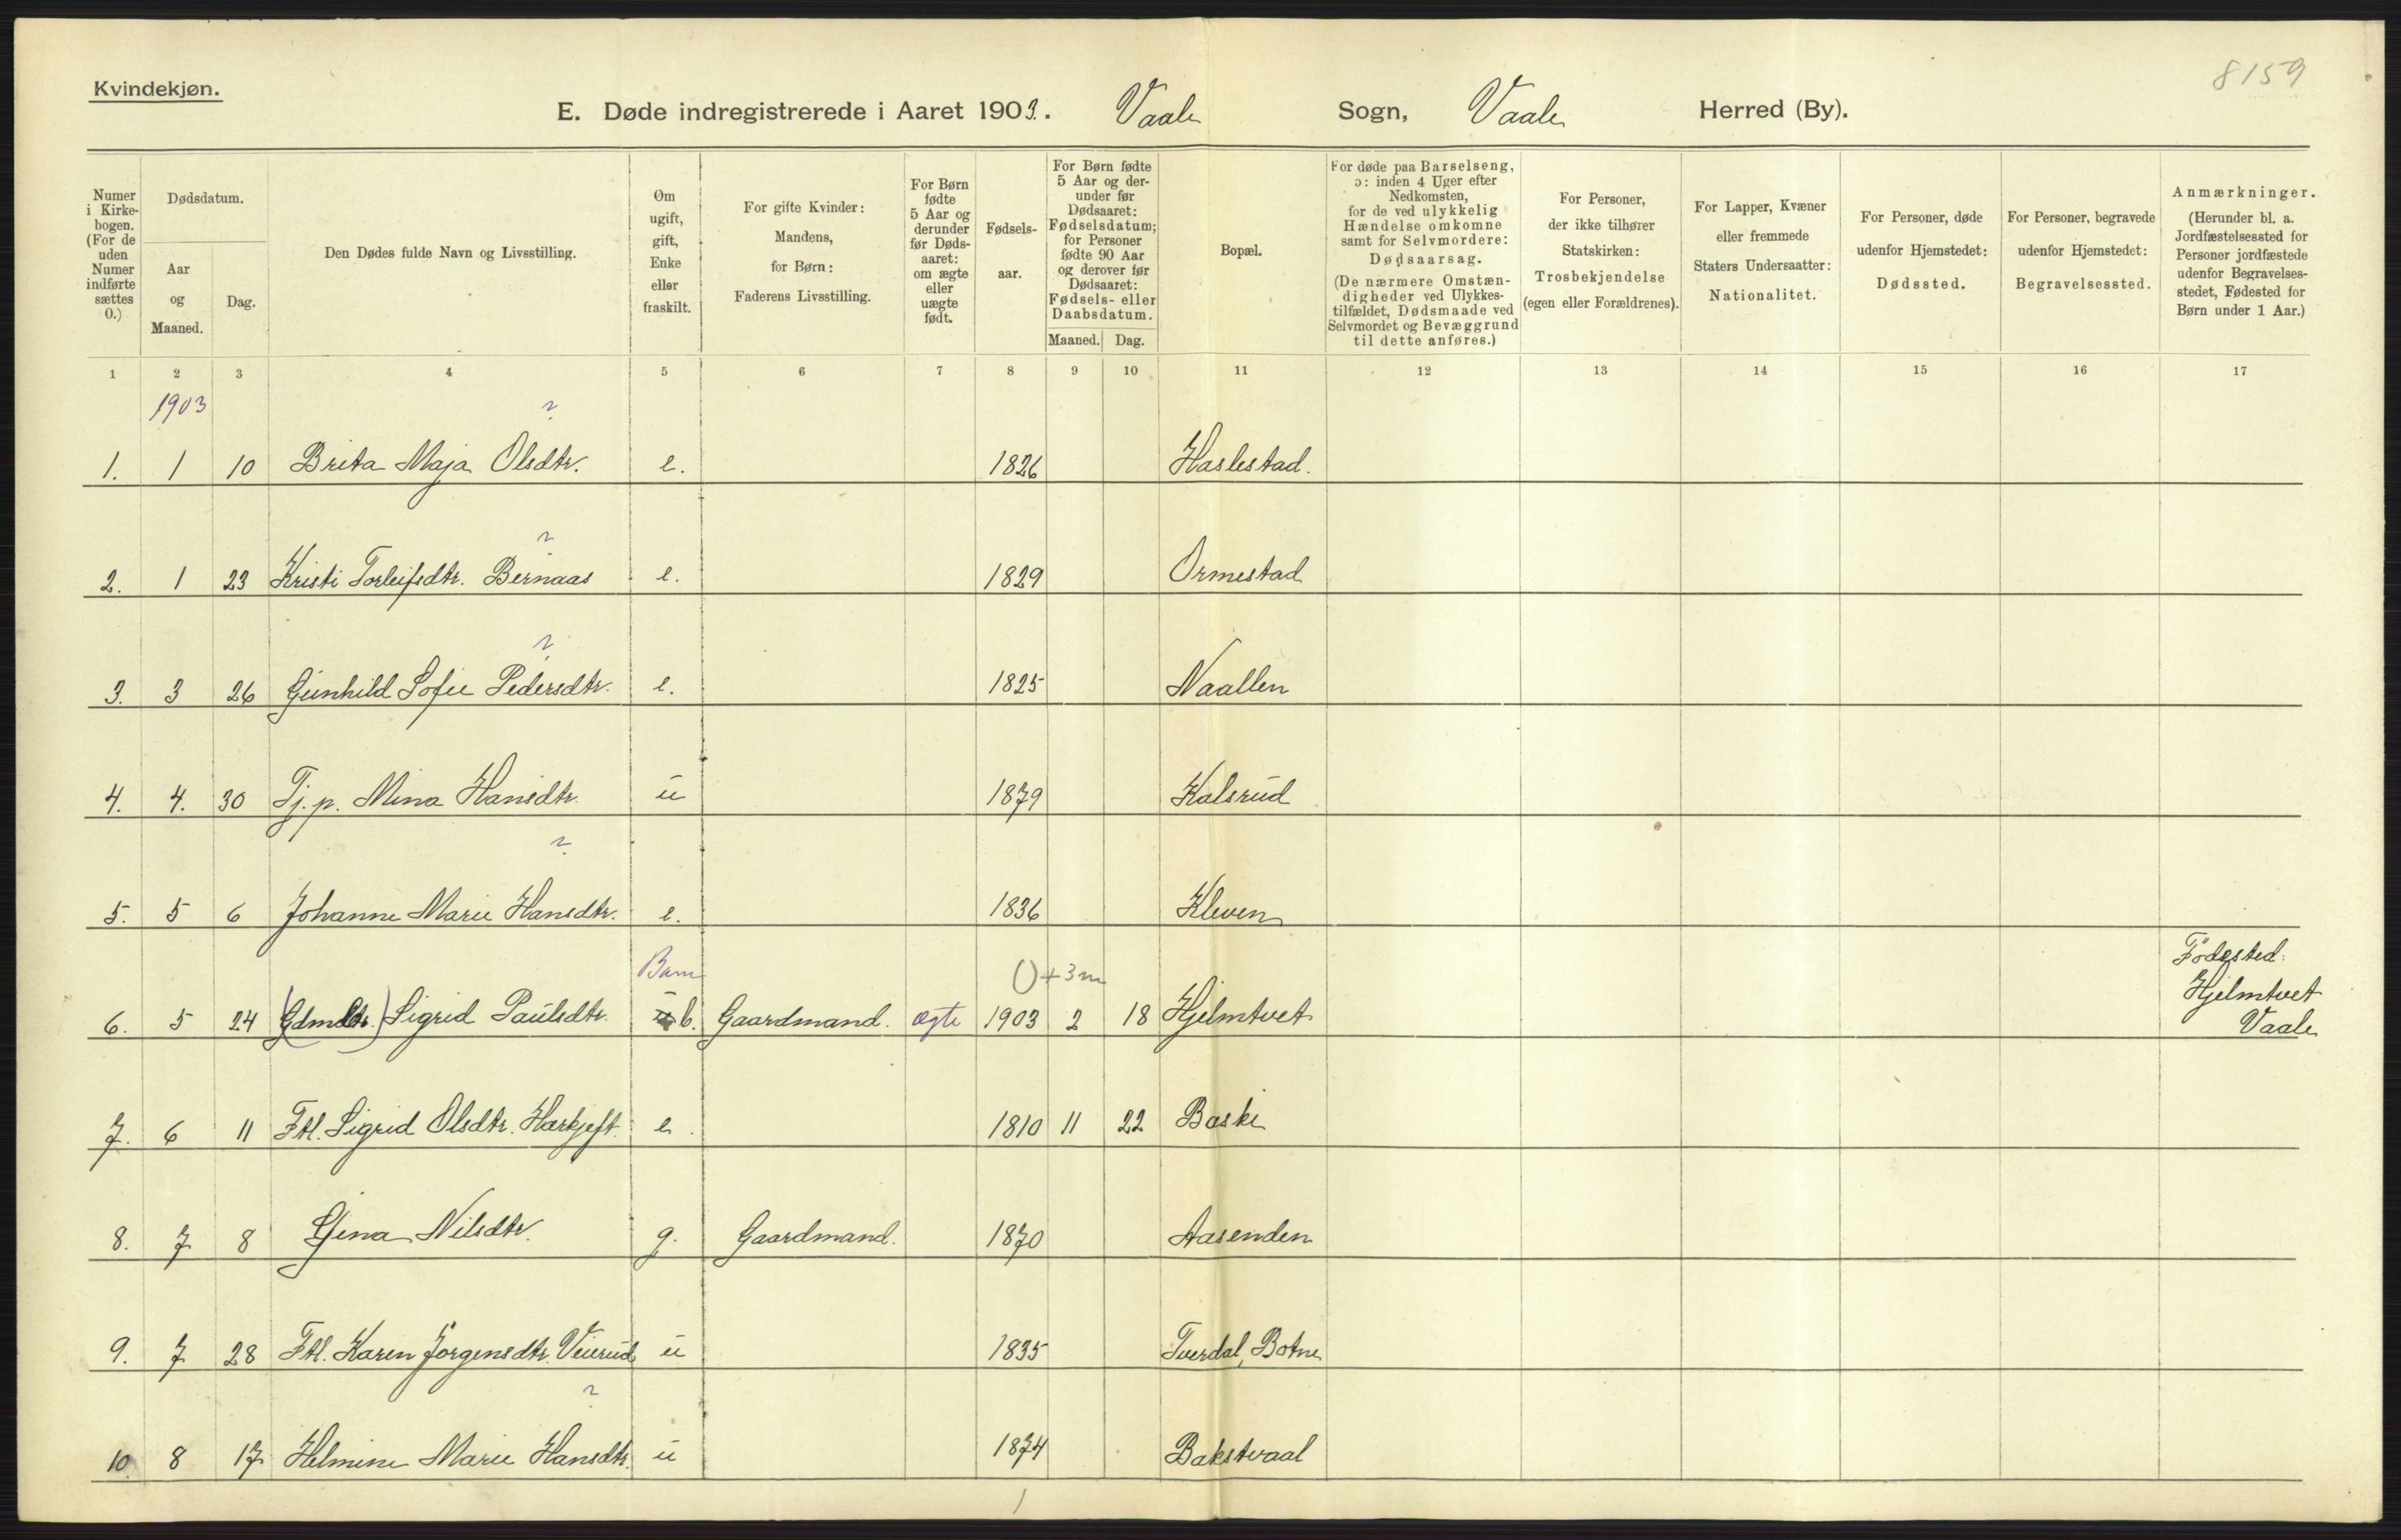 8159
Kvindekjøn.
E. Døde indregistrerede i Aaret 1903. Vaale Sogn, Vaale Herred (By).
Numer
i Kirke-
bogen.
(For de
uden
Numer
indførte
sættes
0.)
Dødsdatum.
Aar
og
Maaned.
Dag.
Den Dødes fulde Navn og Livsstilling.
Om
ugift,
gift,
Enke
eller
fraskilt.
For gifte Kvinder:
Mandens,
for Børn:
Faderens Livsstilling.
For Børn
fødte
5 Aar og
derunder
før Døds-
aaret:
om ægte
eller
uægte
født.
Fødsels-
aar.
For Børn fødte
5 Aar og der-
under før
Dødsaaret:
Fødselsdatum;
for Personer
fødte 90 Aar
og derover før
Dødsaaret:
Fødsels- eller
Daabsdatum.
Maaned. Dag.
Bopæl.
For døde paa Barselseng,
ɔ: inden 4 Uger efter
Nedkomsten,
for de ved ulykkelig
Hændelse omkomne
samt for Selvmordere:
Dødsaarsag.
(De nærmere Omstæn-
digheder ved Ulykkes-
tilfældet, Dødsmaade ved
Selvmordet og Bevæggrund
til dette anføres.)
For Personer,
der ikke tilhører
Statskirken:
Trosbekjendelse
(egen eller Forældrenes).
For Lapper, Kvæner
eller fremmede
Staters Undersaatter:
Nationalitet.
For Personer, døde
udenfor Hjemstedet:
Dødssted.
For Personer, begravede
udenfor Hjemstedet:
Begravelsessted.
Anmærkninger.
(Herunder bl. a.
Jordfæstelsessted for
Personer jordfæstede
udenfor Begravelses-
stedet, Fødested for
Børn under 1 Aar.)
1 2 3 4 5 6 7 8 9 10 11 12 13 14 15 16 17
1903
?
1. 1 10 Brita Maja Olsdtr. e. 1826 Haslestad.
?
2. 1 23 Kristi Torleifsdtr. Bernaas e. 1829 Ormestad
?
3. 3 26 Gunhild Sofie Pedersdtr. e. 1825 Naallen
4. 4. 30 Tj. p. Mina Hansdtr. u 1879 Kalsrud
?
5. 5 6 Johanne Marie Hansdtr. e. 1836 Kleven
Barn () + 3 m Fødested:
Hjelmtvet
Vaale
6. 5 24 (Gdmdtr.) Sigrid Paulsdtr. b. Gaardmand. ægte 1903 2 18 Hjelmtvet
7. 6 11 Ftl. Sigrid Olsdtr. e. 1810 11 22 Baski
8. 7 8 Gina Nilsdtr. g. Gaardmand. 1870 Aasenden
9. 7 28 Ftl. Karen Jørgensdtr. Veierud u 1835 Tverdal, Botne
?
10. 8 17 Helmine Marie Hansdtr. u 1874 Bakstvaal
1